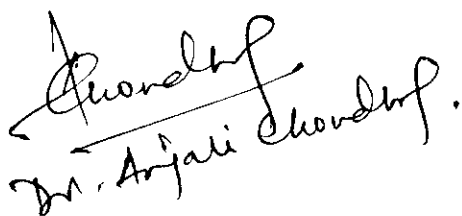 Choudhry
Dr. Anjali Choudhry.